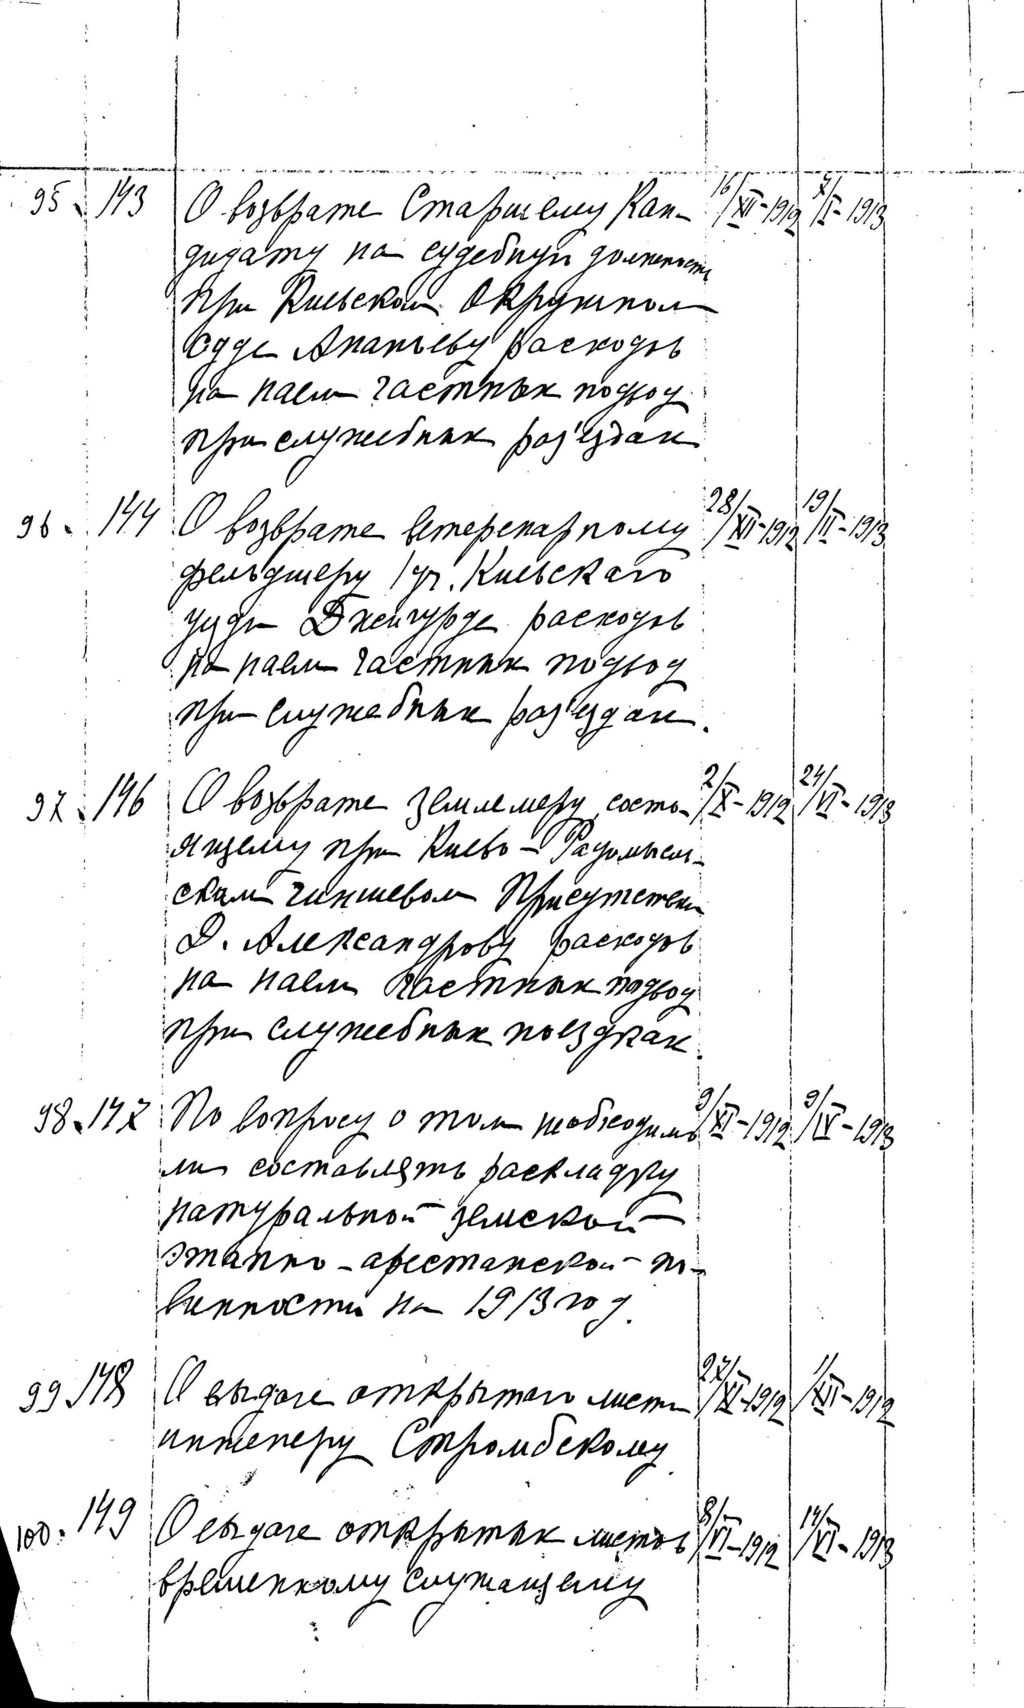 95. 143 О возврате Старшему Кан- 16/XII-1912 7/I-1913
дидату на судебную должность
при Киевском Окружном
Суде Ананьеву расходов
на наем частных подвод
при служебных раз'ездах
96. 144 О возврате ветеренарному 28/XII-1912 19/II-1913
фельдшеру 1 уч. Киевскаго
уезда Джигурде расходов
на наем частных подвод
при служебных раз'ездах.
97. 146 О возврате землемеру, состо- 2/X-1912 24/VI-1913
ящему при Киево-Радомысль-
ском чиншевом Присутствии
Д. Александрову расходов
на наем частных подвод
при служебных поездках.
98. 147 По вопросу о том необходимо 9/XI-1912 9/IV-1913
ли составлять раскладку
натуральной земской
этапно-арестанской по-
винности на 1913 год.
99. 148 О выдаче открытого листа 27/XI-1912 1/XII-1912
инженеру Стромбскому
100. 149 О выдаче открытых листов 8/VI-1912 14/VI-1913
временному служащему